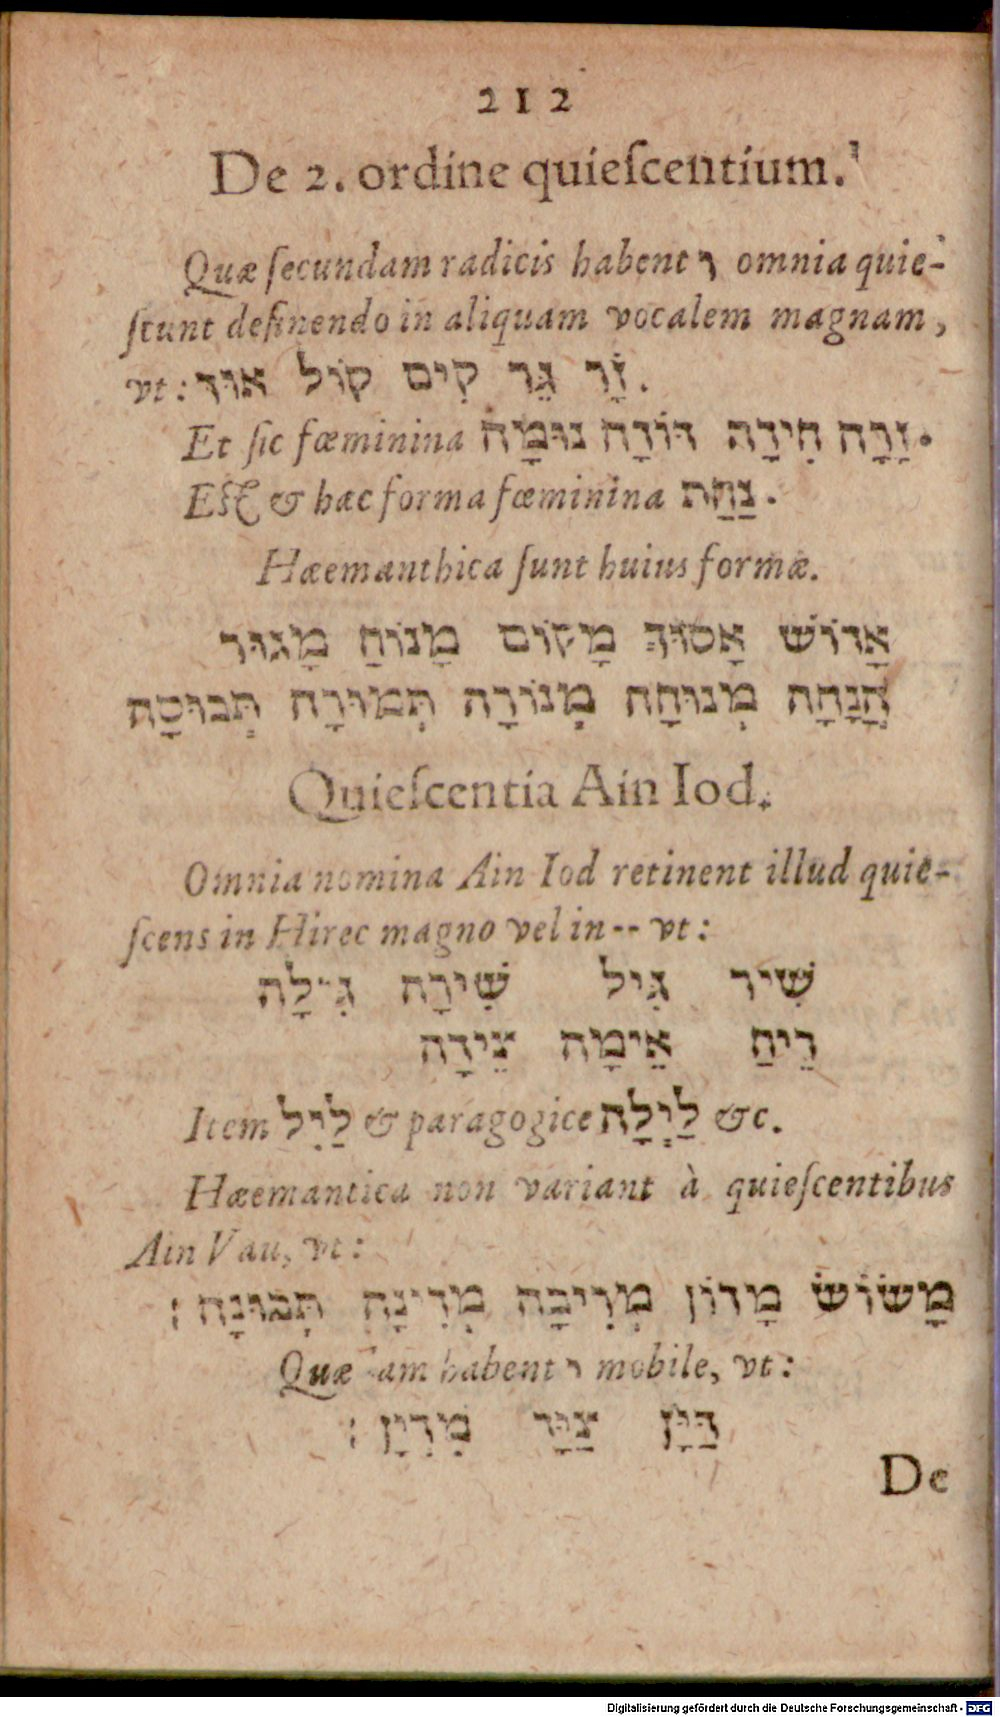 212
De 2. ordine quieſcentium.
Quæ ſecundam radicis habent ו omnia quie-
ſcunt deſinendo in aliquam vocalem magnam,
vt: זָר גֵּר קִים קוֹל אוּר.
Et ſic fœminina זָרָה חִידָה דּוֹדָה נוּמָה.
Eſt & hæc forma fœminina נַחַת.
Hæemanthica ſunt huius formæ.
אָדוֹשׁ אָסוּךְ מָקוֹם מָנוֹחַ מָגוּר
הֲנָחָה מְנוּחָה מְנוֹרָה תְּמוּרָה תְּבוּסָה
Quieſcentia Ain Iod.
Omnia nomina Ain Iod retinent illud quie-
ſcens in Hirec magno vel in -- vt:
שִׁיר גִּיל שִׁירָה גִּילָה
רֵיחַ אֵימָה צֵידָה
Item לַיִל & paragogice לַיְלָה &c.
Hæemantica non variant à quieſcentibus
Ain Vau, vt:
מָשׂוֹשׂ מָדוֹן מְרִיבָה מְדִינָה תְּבוּנָה:
Quæ am habent י mobile, vt:
דַּיָּן צַיָּר מִדְיָן:
De
Digitalisierung gefördert durch die Deutsche Forschungsgemeinschaft - DFG